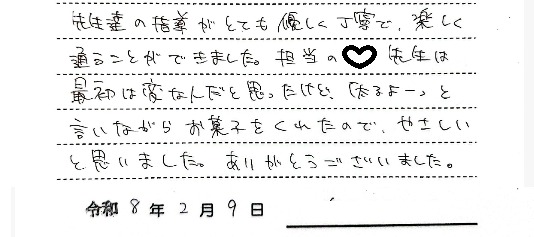 先生達の指導がとても優しく丁寧で、楽しく
通うことができました。担当の♥先生は
最初は変なんだと思ったけど、「太るよー」と
言いながらお菓子をくれたので、やさしい
と思いました。ありがとうございました。
令和8年2月9日